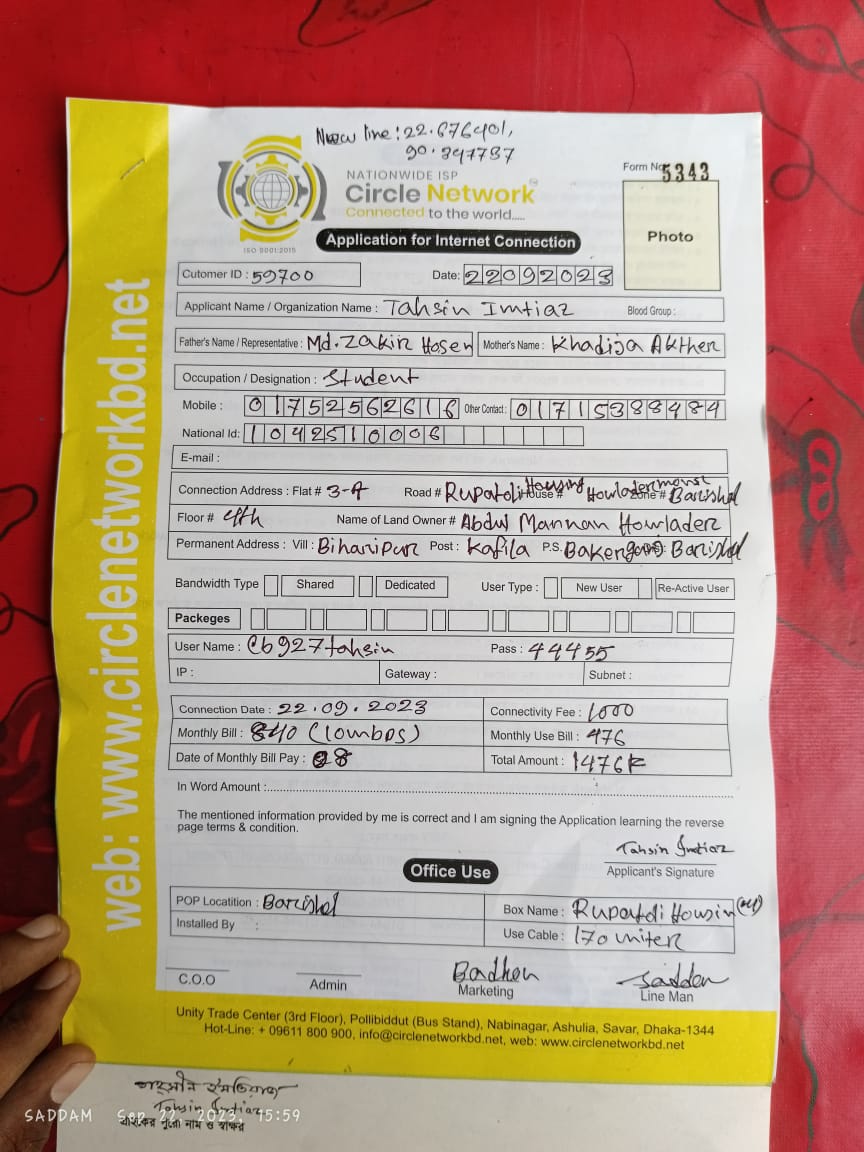 New line: 22.676401,
90.347787
NATIONWIDE ISP
Circle Network
Connected to the world.....
ISO 9001:2015
Form No 5343
Photo
Application for Internet Connection
Cutomer ID : 59700 Date: 22092023
Applicant Name / Organization Name : Tahsin Imtiaz Blood Group :
Father's Name / Representative : Md. Zakir Hosen Mother's Name : Khadija Akther
Occupation / Designation : Student
Mobile : 01752562616 Other Contact : 01715388484
National Id: 1042510006
E-mail :
Connection Address : Flat # 3-A Road # Rupatoli Housing House # Howlader Zone # Barishal
Floor # 4th Name of Land Owner # Abdul Mannan Howlader
Permanent Address : Vill : Biharipur Post : Kafila P.S. Barishal
Bandwidth Type Shared Dedicated User Type : New User Re-Active User
Packeges
User Name : cb927tahsin Pass : 44455
IP : Gateway : Subnet :
Connection Date : 22.09.2023 Connectivity Fee : 1000
Monthly Bill : 840 (10mbps) Monthly Use Bill : 476
Date of Monthly Bill Pay : 8 Total Amount : 1476
In Word Amount :
The mentioned information provided by me is correct and I am signing the Application learning the reverse
page terms & condition.
Tahsin Imtiaz
Applicant's Signature
Office Use
POP Locatition : Barishal Box Name : Rupatoli Housin
Installed By : Use Cable : 170 miter
Badhon Saddam
C.O.O Admin Marketing Line Man
Unity Trade Center (3rd Floor), Pollibiddut (Bus Stand), Nabinagar, Ashulia, Savar, Dhaka-1344
Hot-Line: + 09611 800 900, info@circlenetworkbd.net, web: www.circlenetworkbd.net
web: www.circlenetworkbd.net
তাহসীন ইমতিয়াজ
Tahsin Imtiaz
গ্রাহকের পুরো নাম ও স্বাক্ষর
SADDAM Sep 22, 2023, 15:59